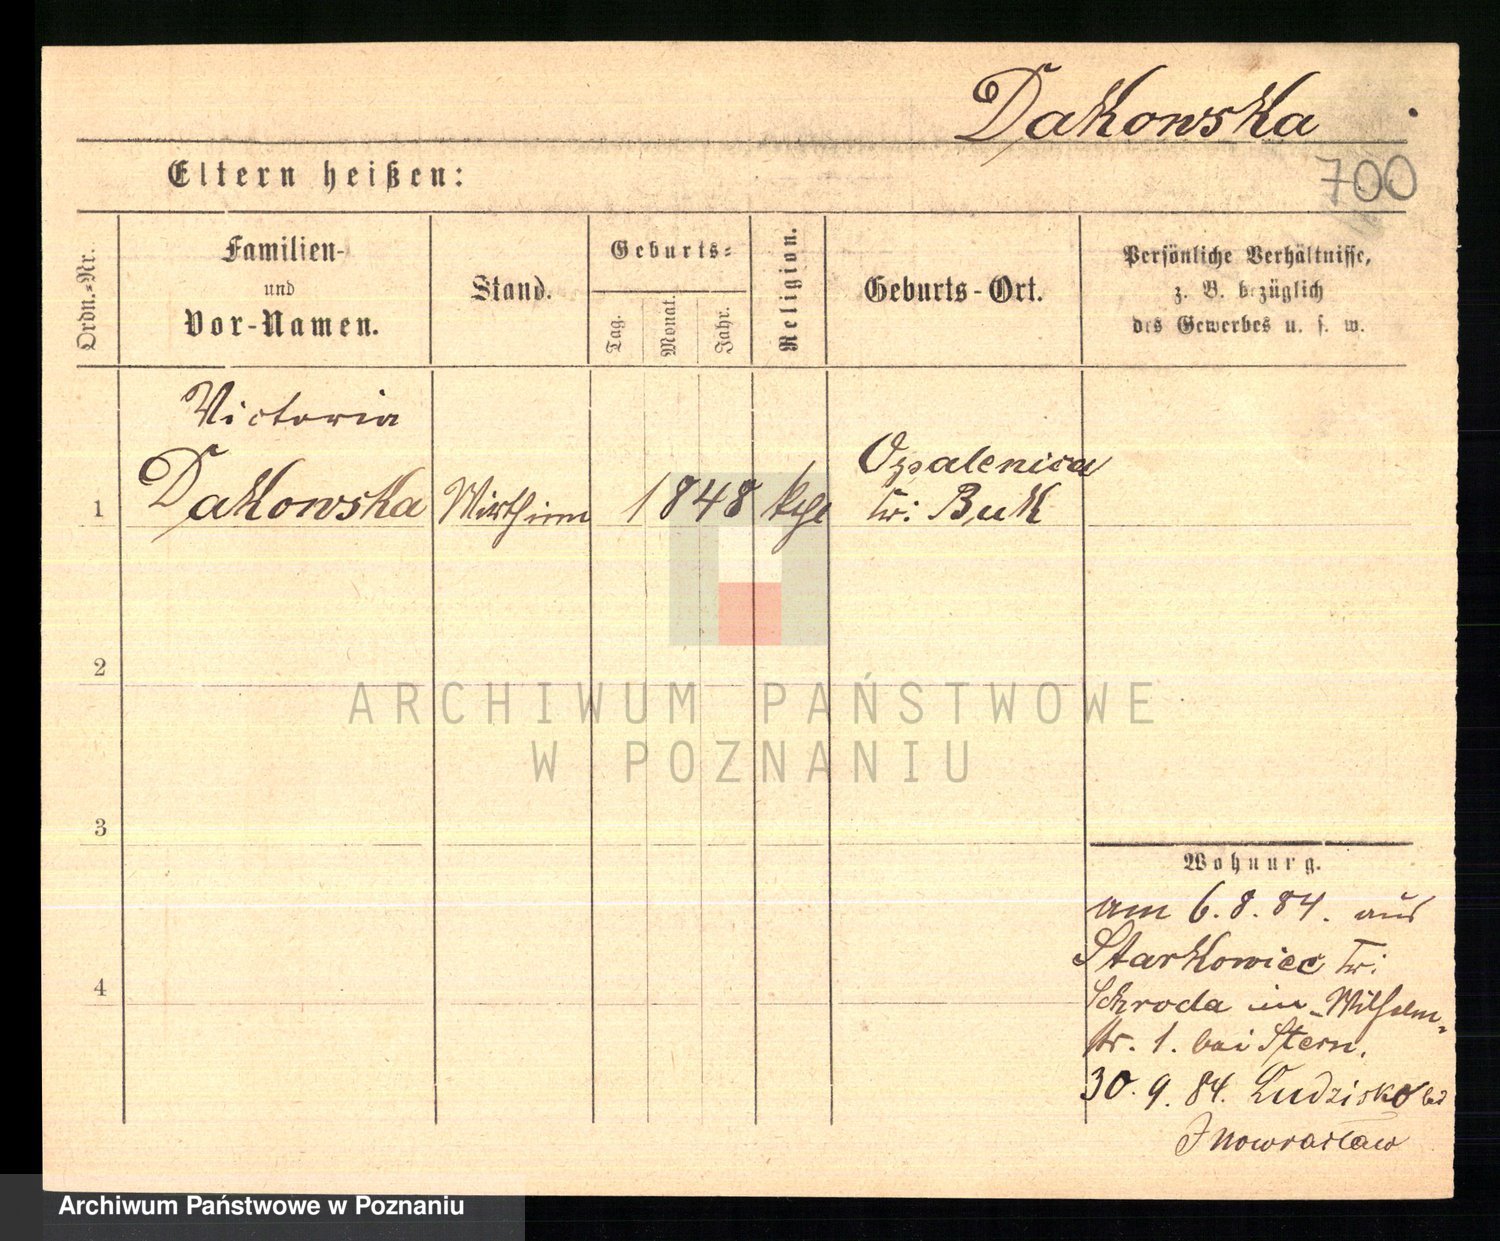 Dakowska.
Eltern heißen:
700
Ordn.-Nr.
Familien-
und
Vor-Namen.
Stand.
Geburts-
Tag.
Monat.
Jahr.
Religion.
Geburts-Ort.
Persönliche Verhältnisse,
z. B. bezüglich
des Gewerbes u. s. w.
Victoria
1 Dakowska Wirthinn 1848 kath Opalenica
Kr: Buk
2
3
4
Wohnung.
am 6. 8. 84. aus
Starkowiec Kr:
Schroda in Wilhelm-
str. 1. bei Stern.
30. 9. 84. Ludzisko bei
Inowraclaw
ARCHIWUM PAŃSTWOWE
W POZNANIU
Archiwum Państwowe w Poznaniu